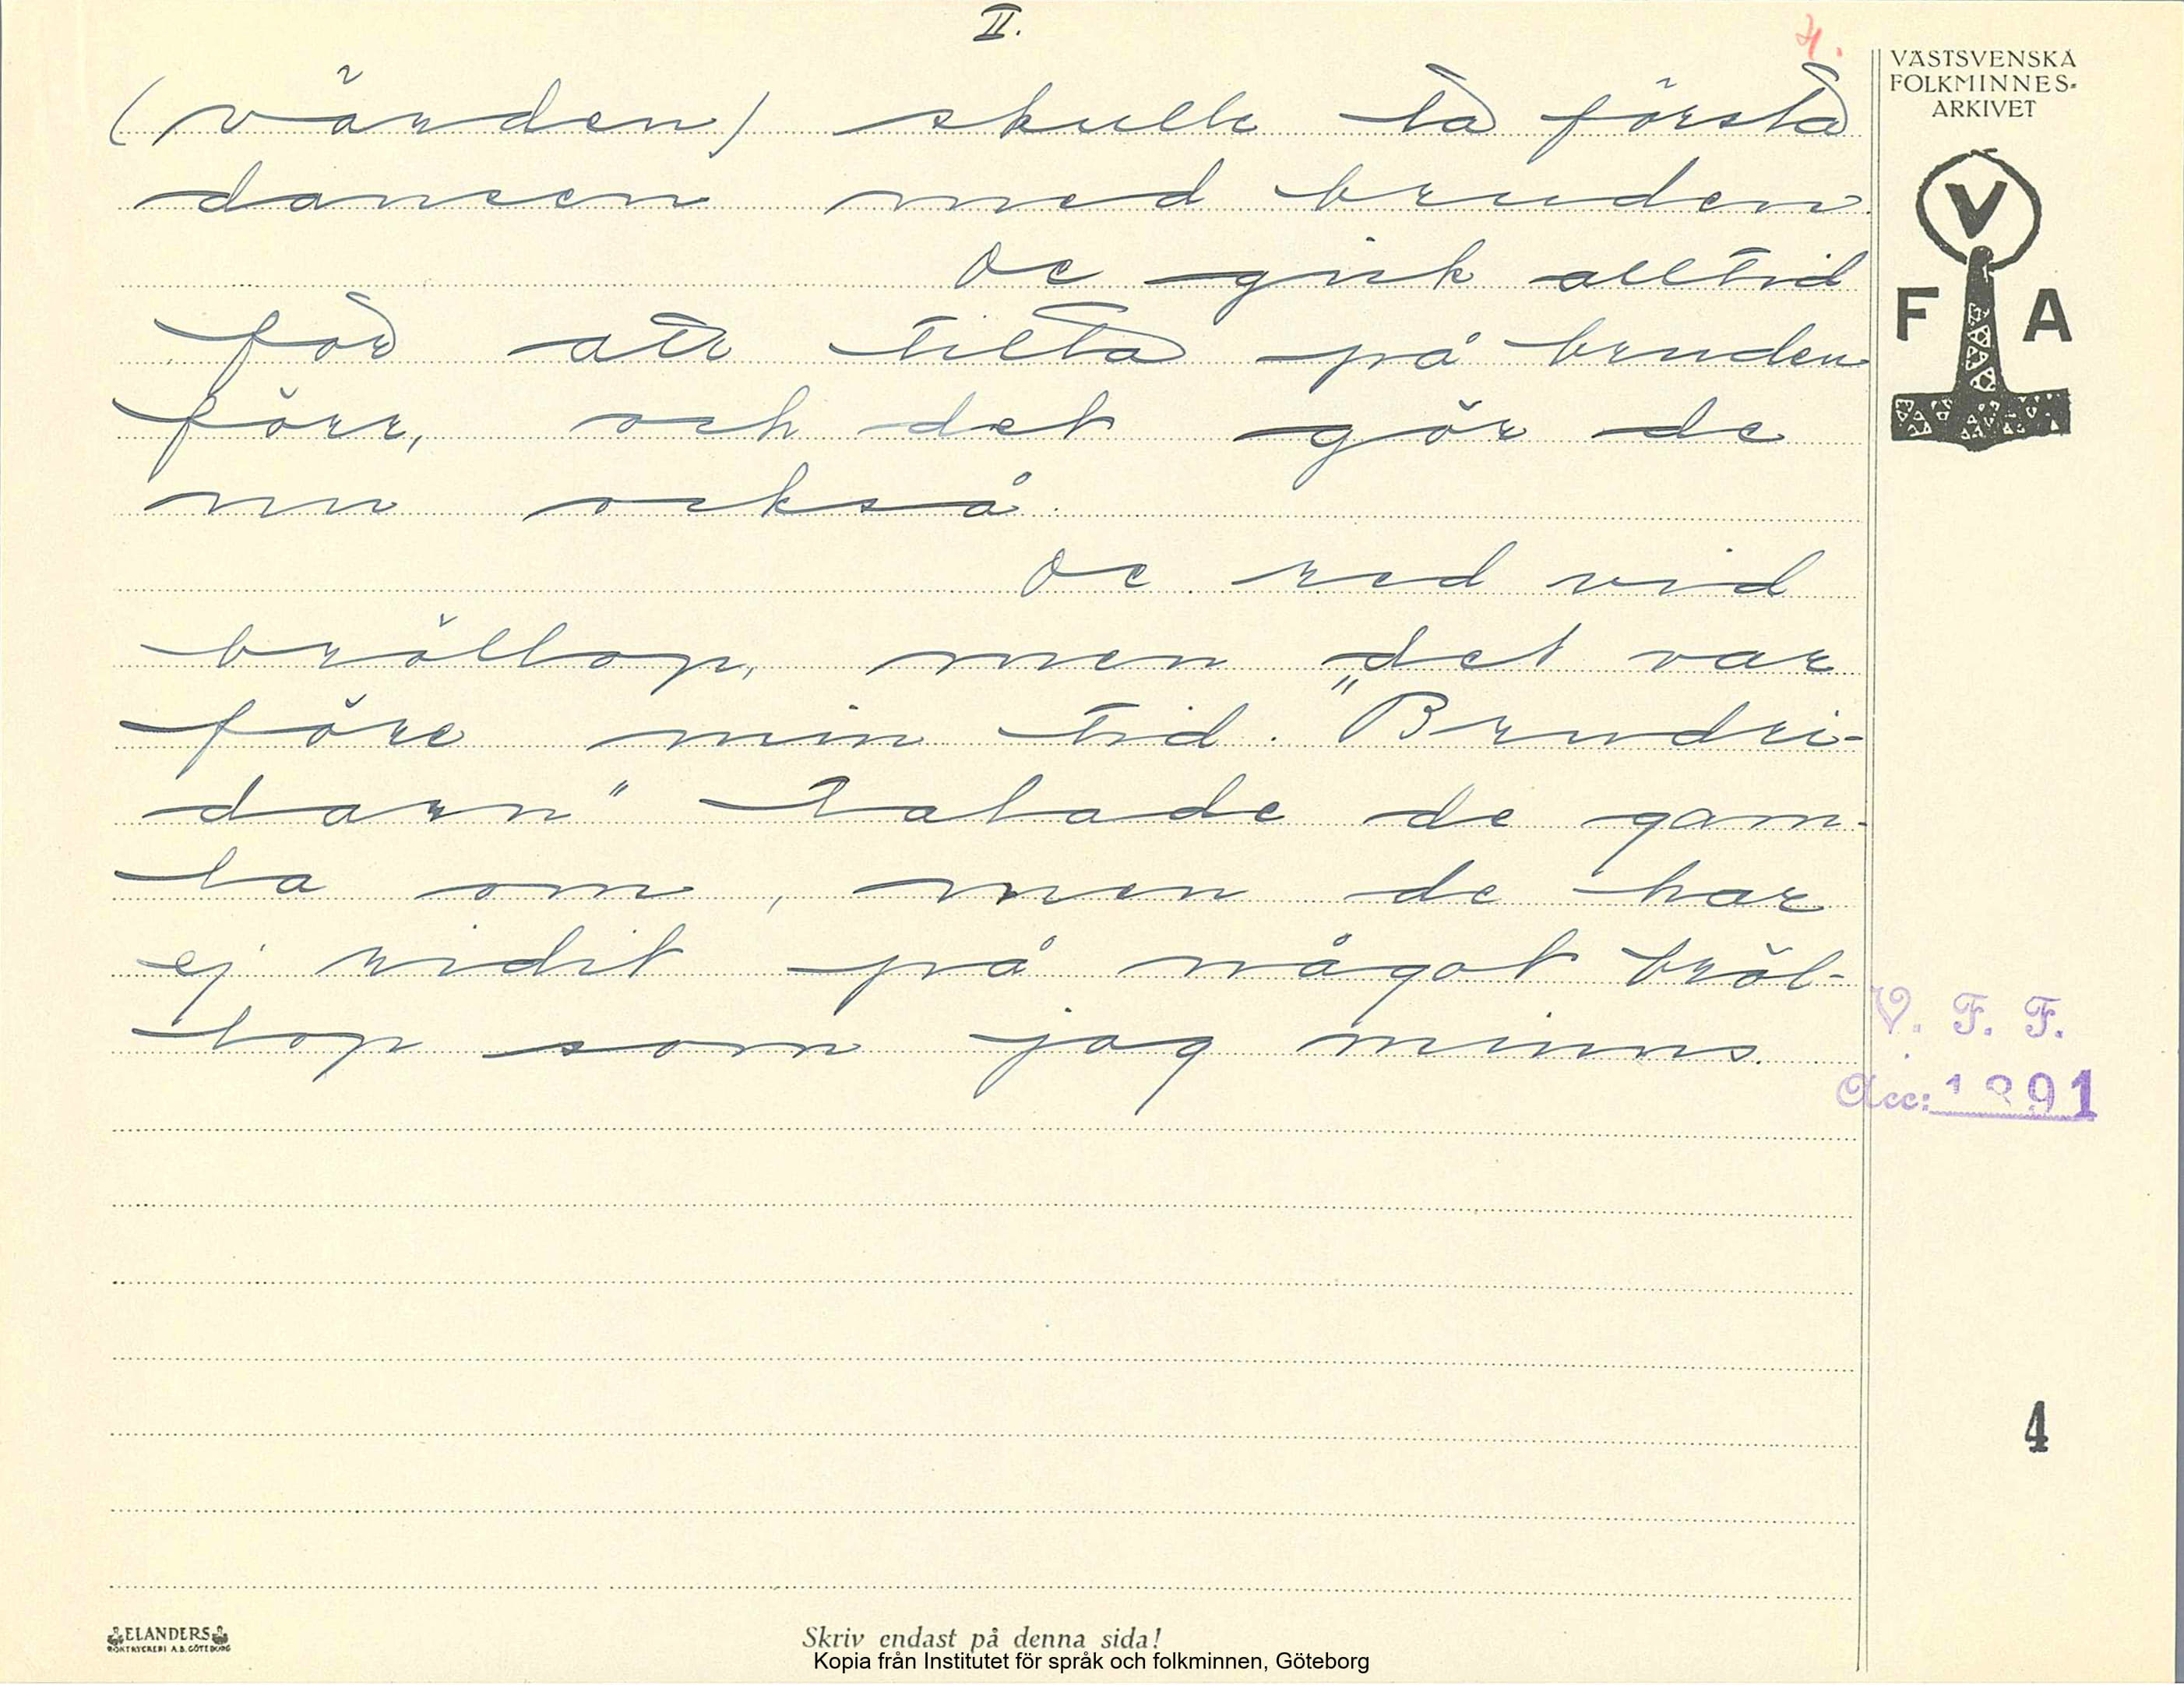 II.
4.
(värden) skulle ta första
dansen med bruden.
De gick alltid
för att titta på bruden
förr, och det gör de
nu också.
De red vid
bröllop, men det var
före min tid. "Brudri-
darn" talade de gam-
la om, men de har
ej ridit på något bröl-
lop som jag minns.
VÄSTSVENSKA
FOLKMINNES-
ARKIVET
V
F A
V. F. F.
Acc: 1891
4
ELANDERS
BOKTRYCKERI A.B. GÖTEBORG
Skriv endast på denna sida!
Kopia från Institutet för språk och folkminnen, Göteborg